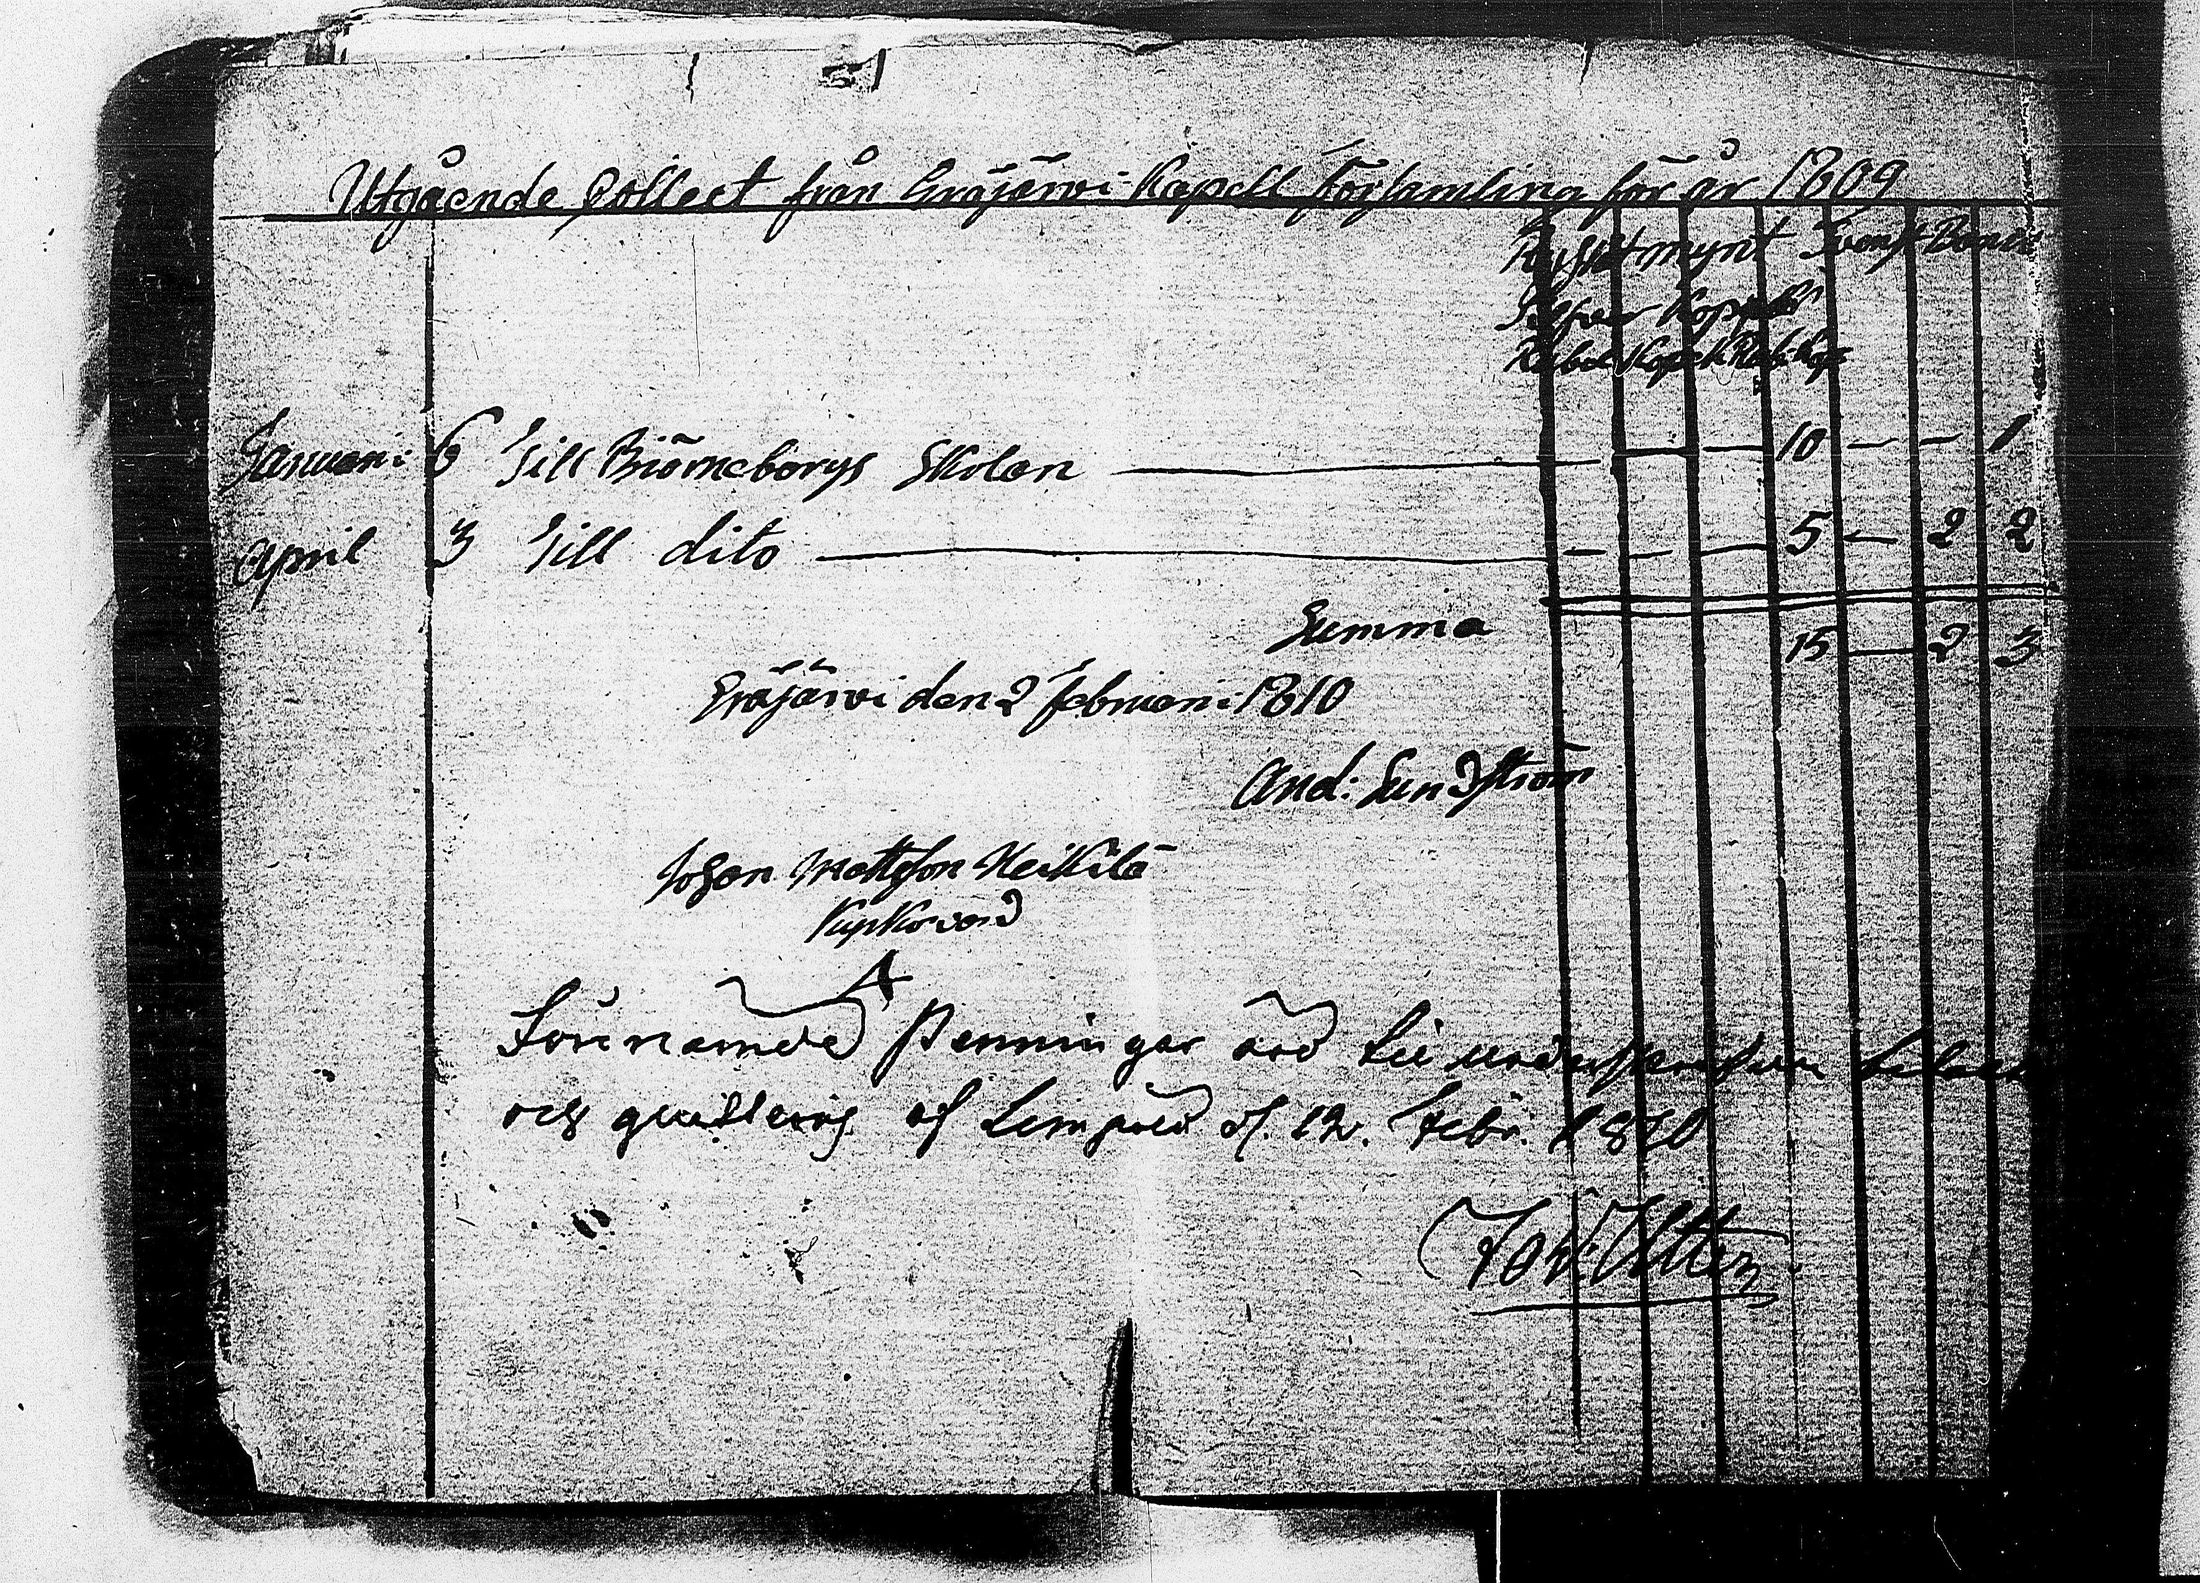 Utgående Collect från Eräjärvi Kapell Församling för år 1809
Ryskt mynt Svensk Banco
Silfver Koppar
Rubel Kopek Rub: Kop
Januari 6 Till Biörneborgs Skolan — — — — 10 — — 1
April 3 Till dito — — — — 5 — 2 2
Summa 15 — 2 3
Eräjärvi den 2 Februari 1810
And: Sundström
Johan Mattsson Heikilä
Kyrkovärd
Förenämde Penningar äro til
och quitteras af Lempälä d. 12. Febr. 1810